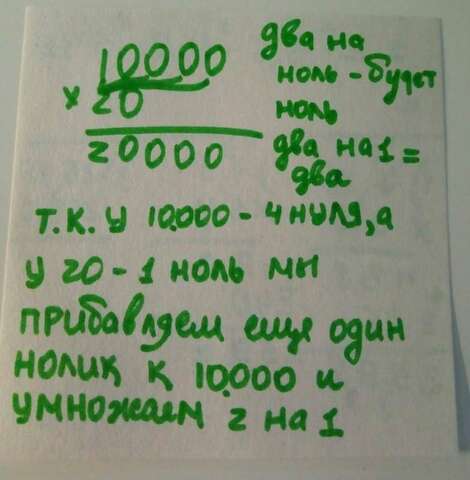 10000
× 20
20000
два на
ноль - будет
ноль
два на 1 =
два
т.к. у 10.000 - 4 нуля, а
у 20 - 1 ноль мы
прибавляем еще один
нолик к 10.000 и
умножаем 2 на 1